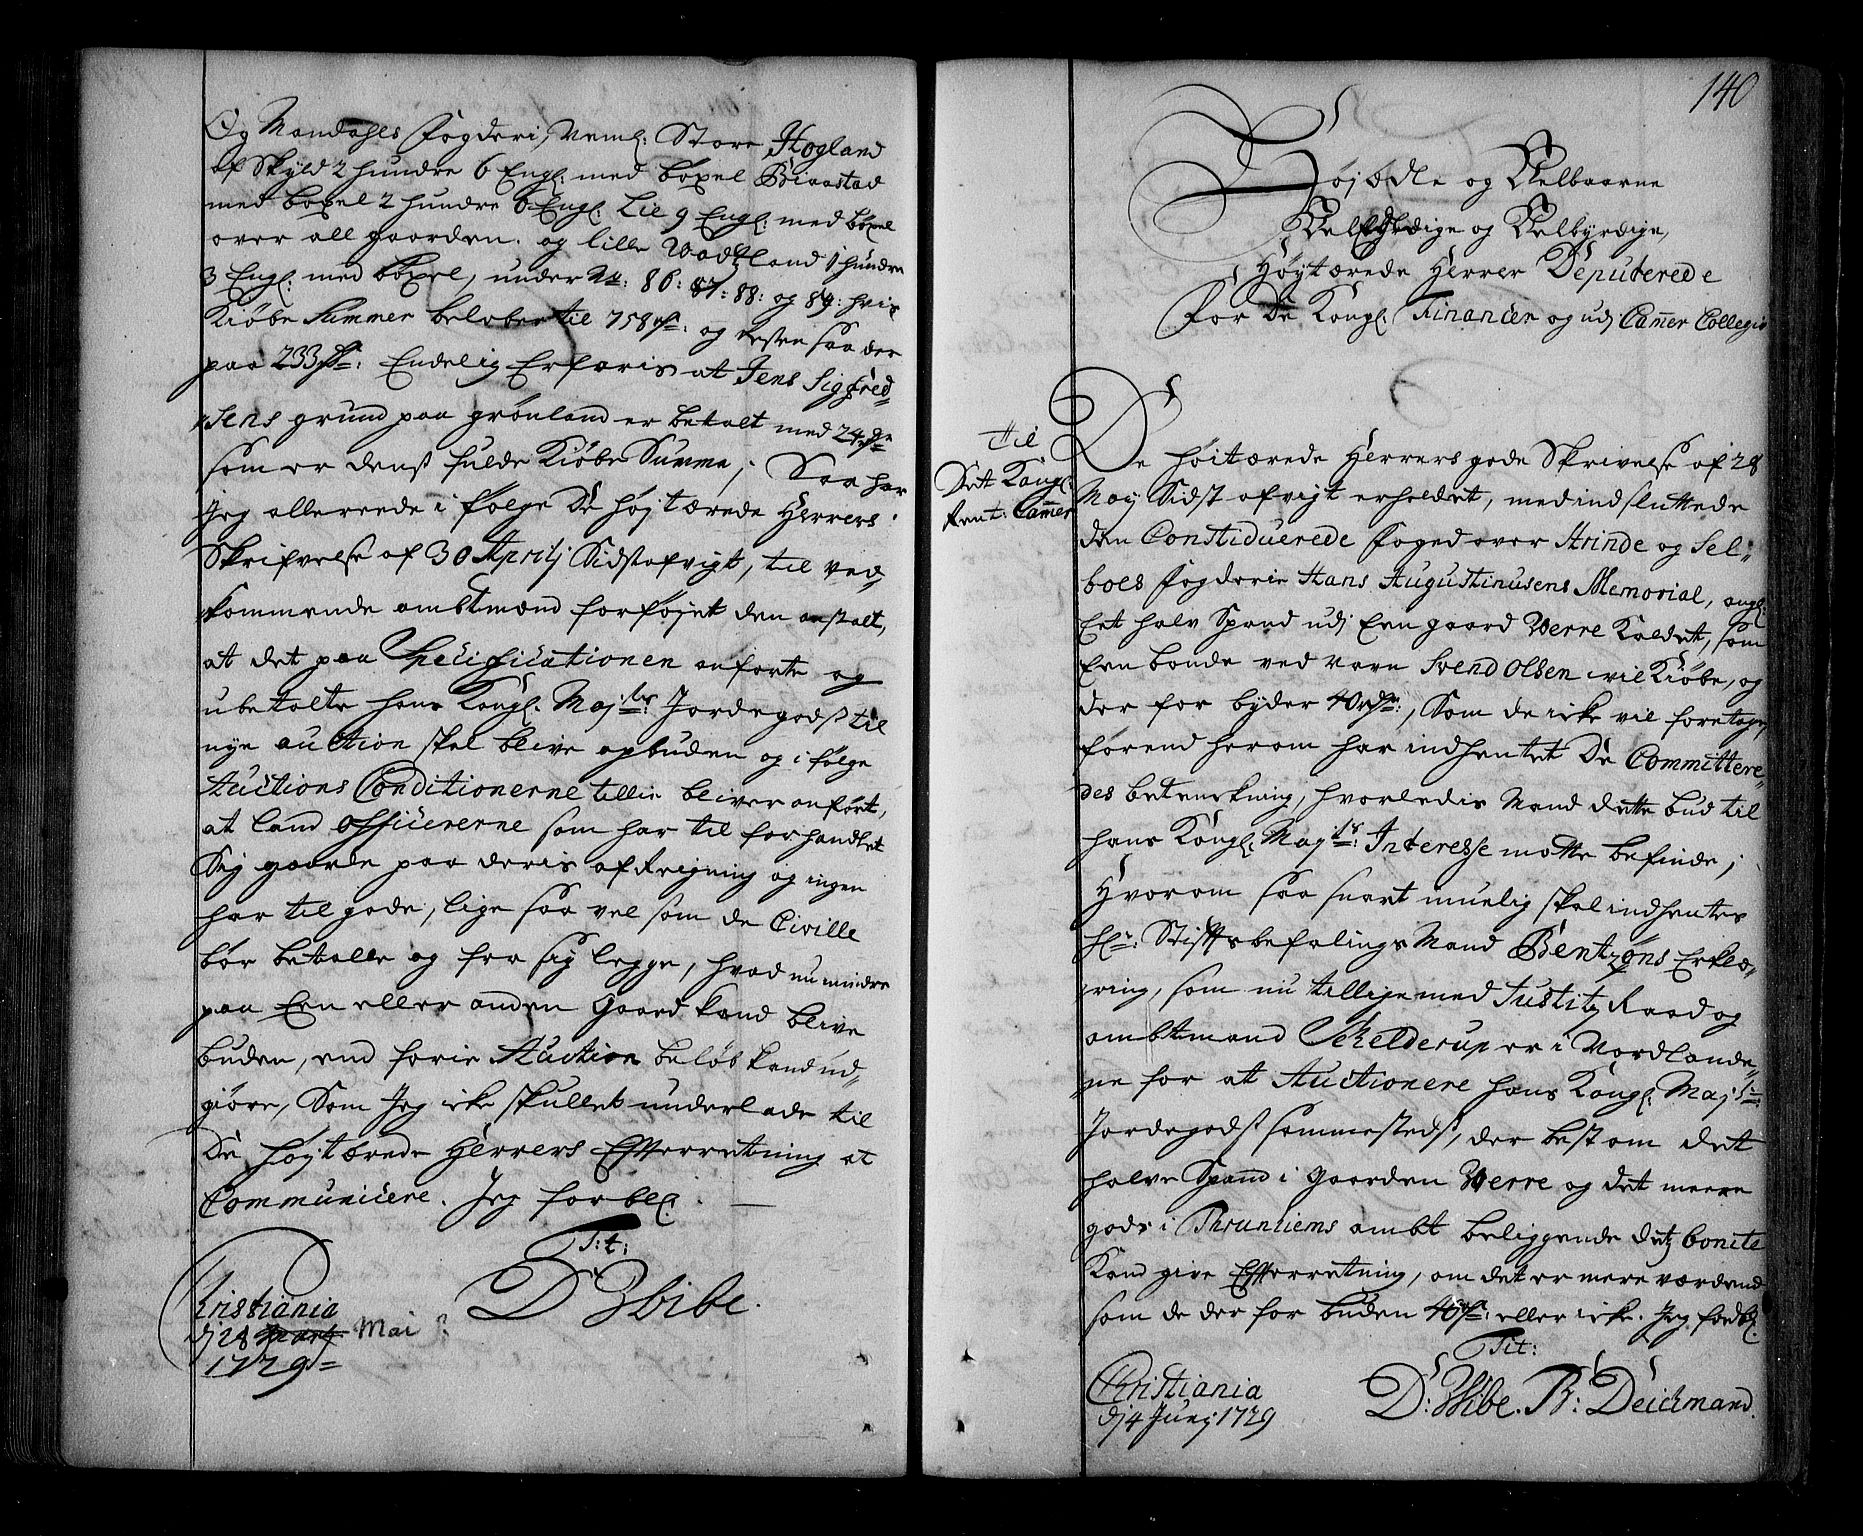 Og Mandahls Fogderi, Neml: Store Hogland
af Skyld 2 hundre 6 Engl: med böxel Biaastad
med böxel 2 hundre 6 Engl. Lie 9 Engl: med böxel
over all gaarden. og lille Vadtzland 1 hundre
3 Engl: med böxel, under No: 86: 87: 88: og 89: hvis
Kiöbe Summer beløber til 758 rdr: og resten saa der
paa 233 rdr: Endelig Erfaris at Jens Sigfred-
sens grund paa grönland er betalt med 24 rdr
som er denß fulde Kiöbe Summa; Saa har
Jeg allereede i følge De højtærede Herrers
Skrifvelse af 30 Aprilj Sidstafvigt, til ved-
kommende ambtmænd forføjet den anstalt,
at det paa Specificationen anførte og
ubetalte hans Kongl. Maj:ts Jordegodß til
nye auction skal blive opbuden og i følge
Auctions Conditionerne tillie bliver anført,
at land officererne som har til forhandlet
Sig gaarde paa deris afReigning og ingen
har til gode, lige saa vel som de Civille
bør betalle og fra sig legge, hvad nu mindre
paa Een eller anden Gaard kand blive
buden, end forrie Auction beløb kand ud-
giöre, Som Jeg icke skullet underlade til
De høytærede Herrers Efterretning at
Communicere. Jeg forbel:
T:t:
D Vibe.
Christiania
dj 28 Martj Mai
1729
140
Højædle og Velbaarne
Veledle og Velbyrdige,
Høytærede Herrer Deputerede
For De Kongl. Financer og udj Cammer Collegio
Til
Dett Kongl:
Rent: Cammer
De höitærede Herrers gode Skrivelse af 28
May Sidst afvigt erholdet, med indsluttede
den Constiduerede Foged over Strinde og Sel-
boes Fogderie Hans Augustinusens Memorial, angl:
Eet halv Spand udj Een gaard Werre Kaldet, som
Een bonde ved Navn Svend Olsen vil Kiöbe, og
der for byder 40 rdr:, Som de icke vil foretage,
förend herom har indhentet De Committere-
des betenckning, hvorledis Mand dette bud til
hans Kongl. Maj:ts Interesse motte befinde;
Hvorom saa snart muelig skal indhentes
Hr: Stiftsbefalings Mand Bentzons Erklæ-
ring, som nu tillige med Justitz Raad og
ambtmand Schelderup er i Nordlande-
ne for at Auctionere hans Kongl. Maj:ts
Jordegodß sammestedß, der best om dett
halve Spand i Gaarden Werre og det meere
gods i Thrundhiems ambt beliggende detz bonite
Kand give Efterretning, om det er mere værdend
som de der for buden 40 rdr: eller icke. Jeg forbl:
Tit:
Christiania
dj 4 Junj 1729
D: Vibe. B: Deichmand.